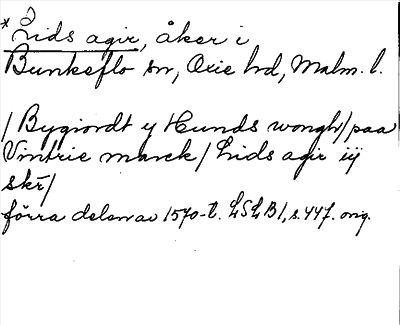 * Lids agir, åker i
Bunkeflo sn, Oxie hd, Malm. l.
/ Bygiordt y Hunds wongh / paa
Vintrie marck / Lids agir iij
skr /
förra delen av 1570-t. LSLB1, s. 447. orig.